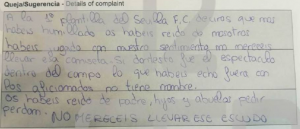 Queja/Sugerencia - Details of complaint
A la 1ª plantilla del Sevilla F.C deciros que nos
habeis humillado os habeis reido de nosotros
habeis jugado con nuestro sentimento no mereceis
llevar esa camiseta. Si dantesto fue el espectaculo
dentro del campo lo que habeis echo fuera con
los aficionados no tiene nombre.
os habeis reido de padre, hijos y abuelos pedir
perdon. NO MERECEIS LLEVAR ESE ESCUDO